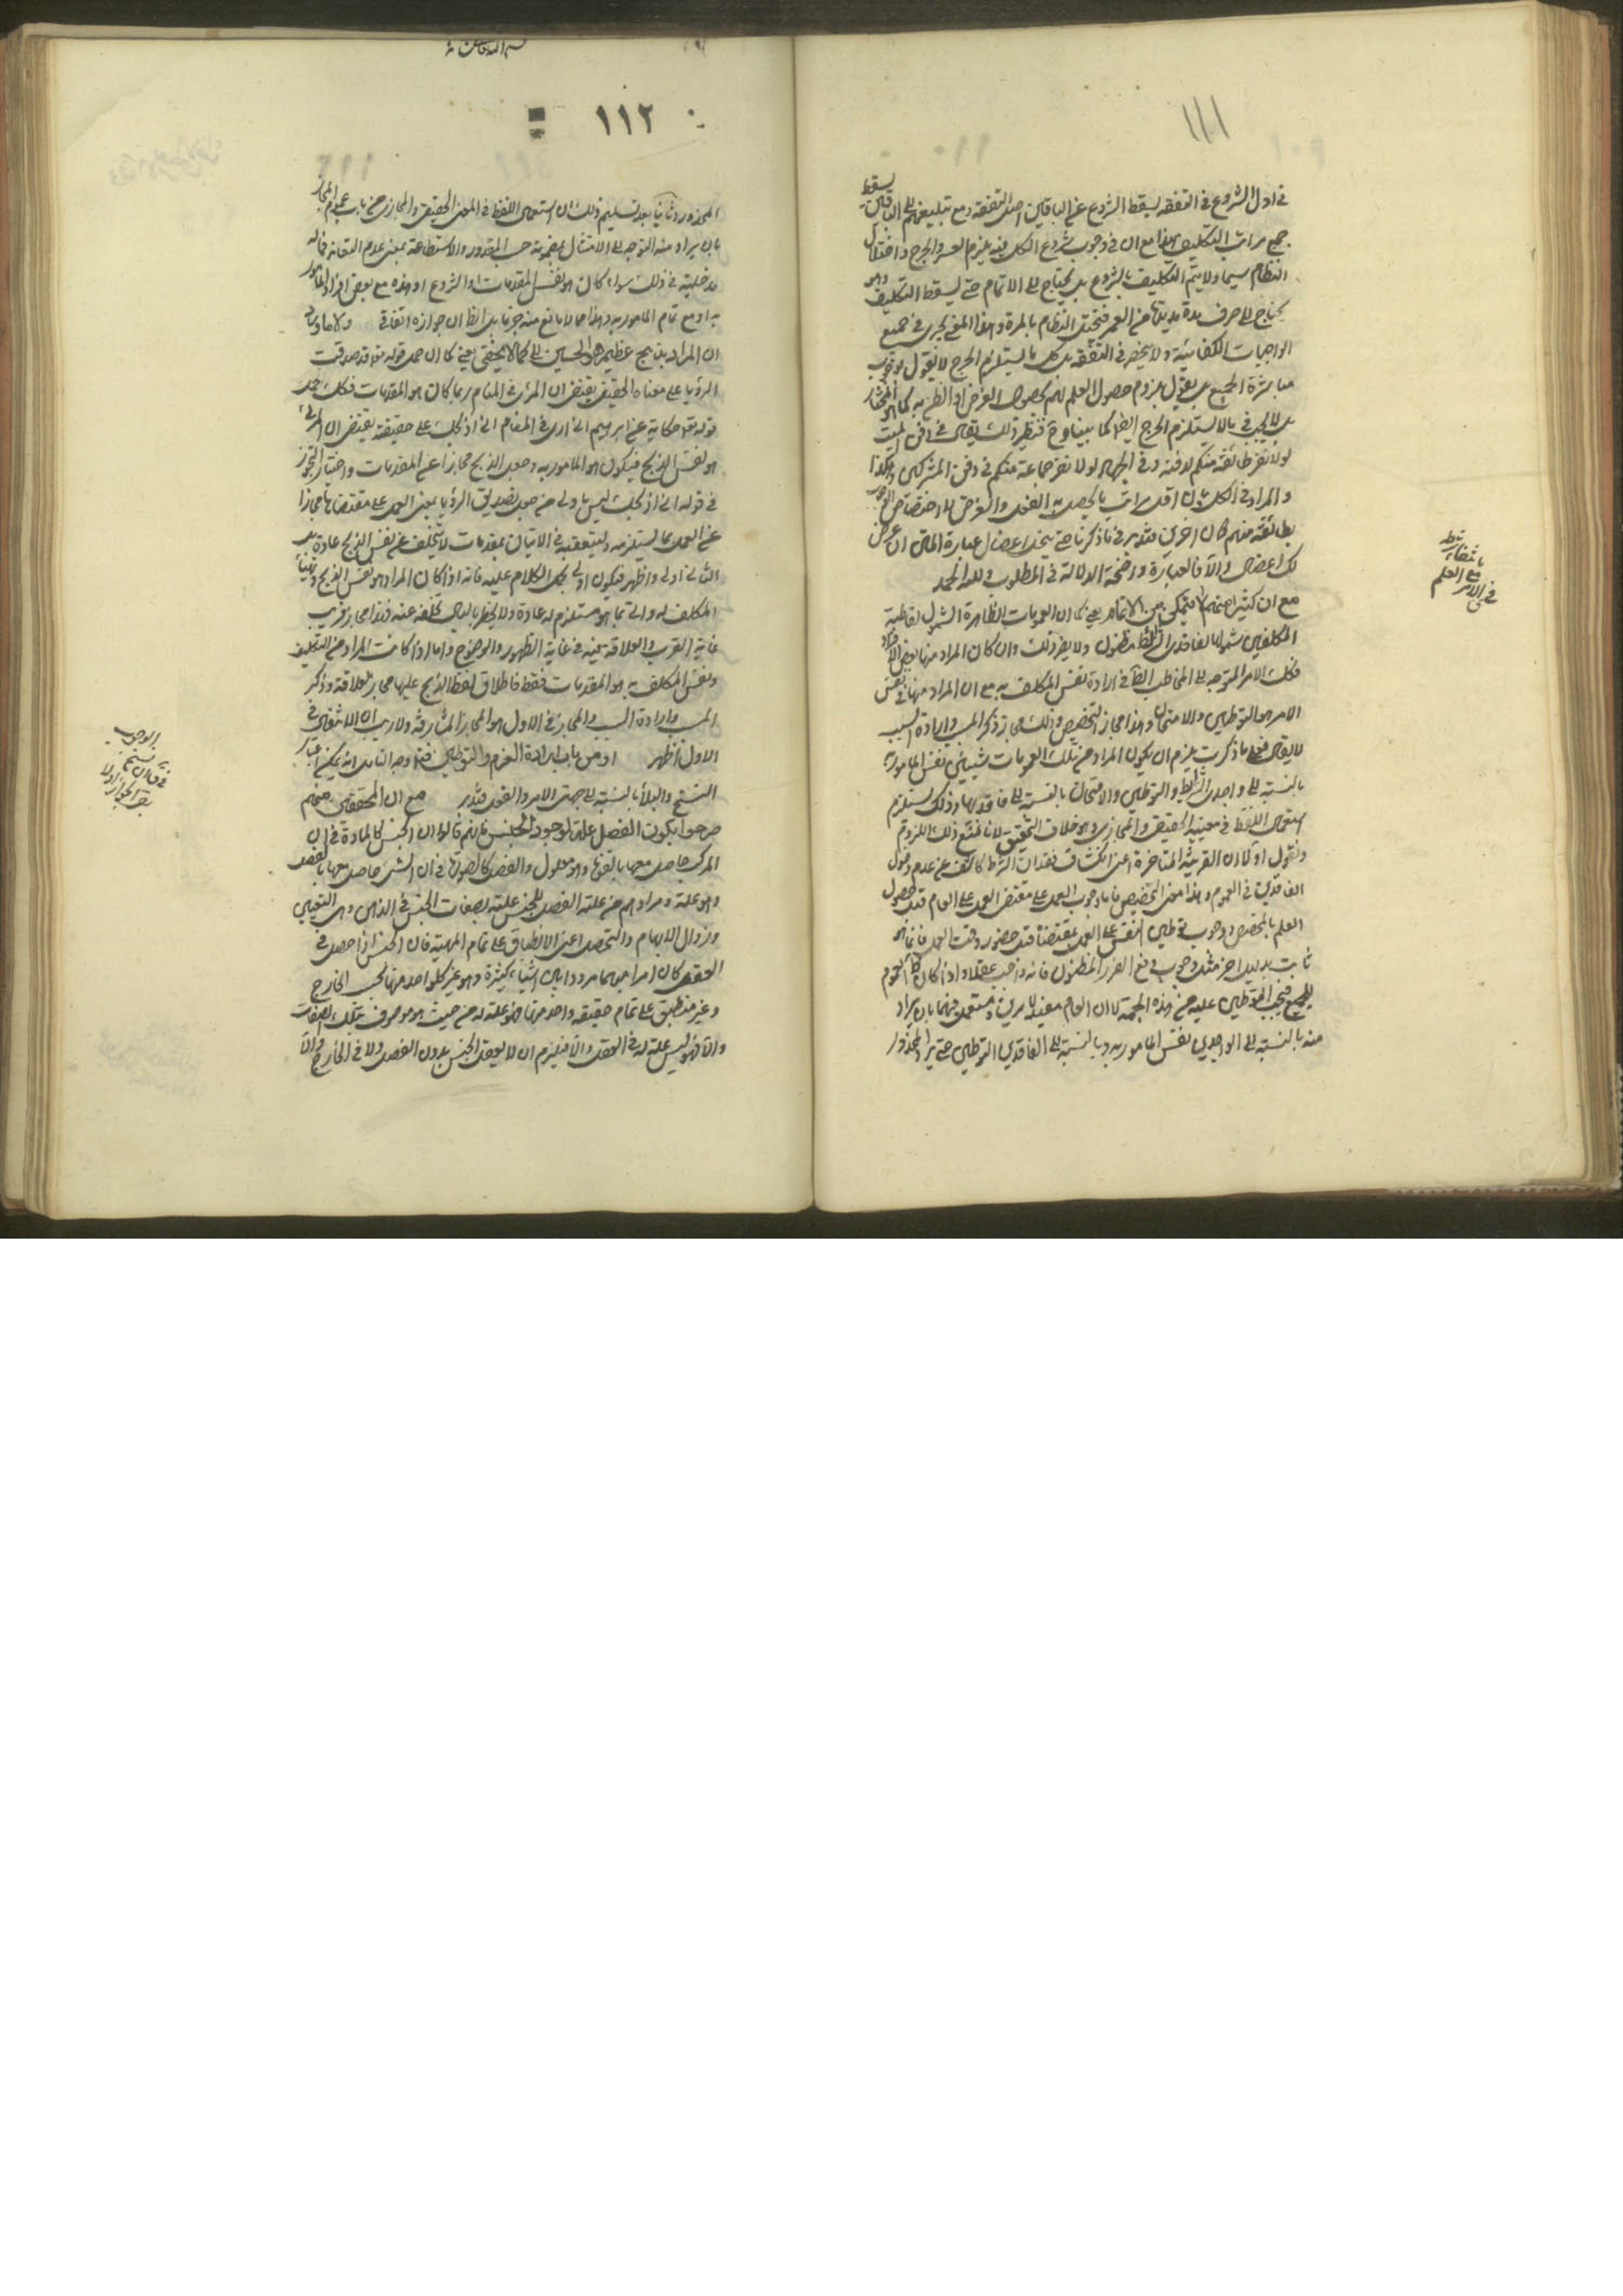 ١١١
في اول الشروع في التفقه يسقط الشروع عن الباقين اصل التفقه ومع تبليغهم الى الباقين يسقط
جميع مراتب التكليف هذا مع ان في وجوب شروع الكل فيه يلزم العسر والحرج واختلال
النظام سيما ولا يتم التكليف بالشروع بل يحتاج الى الاتمام حتى يسقط التكليف وهو
يحتاج الى صرف مدة مديدة من العمر فيختل النظام بالمرة وهذا المعنى يجري في جميع
الواجبات الكفائية ولا ينحصر في التفقه بل كل ما يستلزم الحرج لا نقول بوجوب
مباشرة الجميع بل نقول بلزوم حصول العلم لهم بحصول الغرض او الظن به كما هو المختار
بل لا يجب في ما لا يستلزم الحرج ايضا كما بينا وح فنظير ذلك يقال في دفن الميت
لولا نفر طائفة منكم لدفنه وفي الجهاد لولا نفر جماعة منكم في دفن المشركين وهكذا
والمراد في الكل بيان اقل مراتب ما يحصل به الفعل والغرض لا اختصاص الوجوب
بطائفة منهم كان اخرى فتدبر في ما ذكرنا حتى ينحل اعضال عبارة المتن ان عرض
لك اعضال والا فالعبارة واضحة الدلالة في المطلوب ولله الحمد
مع ان كثيرا منهم لا يتمكن من الاتمام يعني كما ان العمومات الظاهرة الشمول لقاطبة
المكلفين شمولها لفاقدي الشرائط مظنون ولا يضر ذلك وان كان المراد منها بعض الافراد
فكذلك الامر المتوجه الى المخاطب الظاهر في ارادة نفس المكلف به مع ان المراد منها في نفس
الامر هو التوطين والامتحان وهذا مجاز التخصيص وذلك مجاز ذكر المسبب وارادة السبب
لا يقال فعلى ما ذكرت يلزم ان يكون المراد من تلك العمومات شيئين نفس المامور به
بالنسبة الى واجدي الشرايط والتوطين والامتحان بالنسبة الى فاقديها وذلك يستلزم
استعمال اللفظ في معنييه الحقيقي والمجازي وهو خلاف التحقيق لانا نمنع ذلك اللزوم
ونقول اولا ان القرينة المتاخرة اعني انكشاف فقدان الشرط كاشف عن عدم دخول
الفاقدين في العموم وهذا معنى التخصيص واما وجوب العمل على مقتضى العمل على العام قبل حصول
العلم بالمخصص ووجوب توطين النفس على العمل بمقتضاه قبل حضور وقت العمل فانما هو
ثابت بدليل اخر مثل وجوب دفع الضرر المظنون فانه واجب عقلا واذا كان ظاهر العموم
للجميع فيجب التوطين عليه من هذه الجهة لا ان العام مفيد لامرين ومستعمل فيهما بان يراد
منه بالنسبة الى الواجدين نفس المامور به وبالنسبة الى الفاقدين التوطين حتى يرد المحذور
بانتفاء شرطه
مع العلم
في الامر
١١٢
المحذور وثانيا بعد تسليم ذلك ان استعمال اللفظ في المعنى الحقيقي والمجازي من باب عموم المجاز
بان يراد منه التوجه الى الامتثال بمضمونه حسب المقدور والاستطاعة بمعنى عدم التقاعد فما له
مدخلية في ذلك سواء كان هو نفس المقدمات او الشروع او هذه مع بعض افراد المامور
به او مع تمام المامور به وهذا مما لا مانع منه جزما بل الظاهر ان جوازه اتفاقي
ان المراد بذبح عظيم هو الحسين ع كما لا يخفى يعني كما ان حمل قوله تعالى قد صدقت
الرؤيا على معناه الحقيقي يقتضي ان المرئي في المنام ربما كان هو المقدمات فكذلك حمل
قوله تعالى حكاية عن ابرهيم اني ارى في المنام اني اذبحك على حقيقته يقتضي ان المرئي
هو نفس الذبح فيكون هو المامور به وجعل الذبح مجازا عن المقدمات واختيار التجوز
في قوله اني اذبحك ليس باولى من جعل تصديق الرؤيا بمعنى العمل على مقتضاها مجازا
عن العمل بما يستلزمه ويتعقبه فان الاتيان بمقدمات لا يتخلف عن نفس الذبح عادة بل
الثاني اولى واظهر فيكون اولى بحمل الكلام عليه فانه اذا كان المراد هو نفس الذبح وتهيأ
المكلف له واتى بما هو مستلزم له عادة ولا يخطر بالبال تخلفه عنه فهذا مجاز قريب
غاية القرب والعلاقة فيه في غاية الظهور والوضوح واما اذا كانت المراد من التكليف
ونفس المكلف به هو المقدمات فقط فاطلاق لفظ الذبح عليها مجاز بعلاقة وذكر
المسبب وارادة السبب والمجاز في الاول هو المجاز المشارفة ولا ريب ان الانتقال في
الاول اظهر او من باب ارادة العزم والتوطين فتامل وجه التامل انه يمكن اعتبار
النسخ والبداء بالنسبة الى جهتي الامر والفعل فتدبر مع ان المحققين منهم
صرحوا بكون الفصل علة لوجود الجنس فانهم قالوا ان الجنس كالمادة في ان
المركب حاصل معها بالقوة وهو معلول والفصل كالصورة في ان الشيء حاصل معها بالفعل
وهو علة ومرادهم من علية الفصل للجنس عليته لصفات الجنس في الذهن وهي التعيين
وزوال الابهام والتحصل اعني الانطباق على تمام المهية فان الجنس اذا حصل في
العقل كان امرا مبهما مرددا بين اشياء كثيرة وهو عين كل واحد منها بحسب الخارج
وغير منطبق على تمام حقيقة واحد منها فهو علة له من حيث هو موصوف بتلك الصفات
والا فهو ليس علة له في العقل والا فيلزم ان لا يعقل الجنس بدون الفصل ولا في الخارج والا
الوجوب
لا